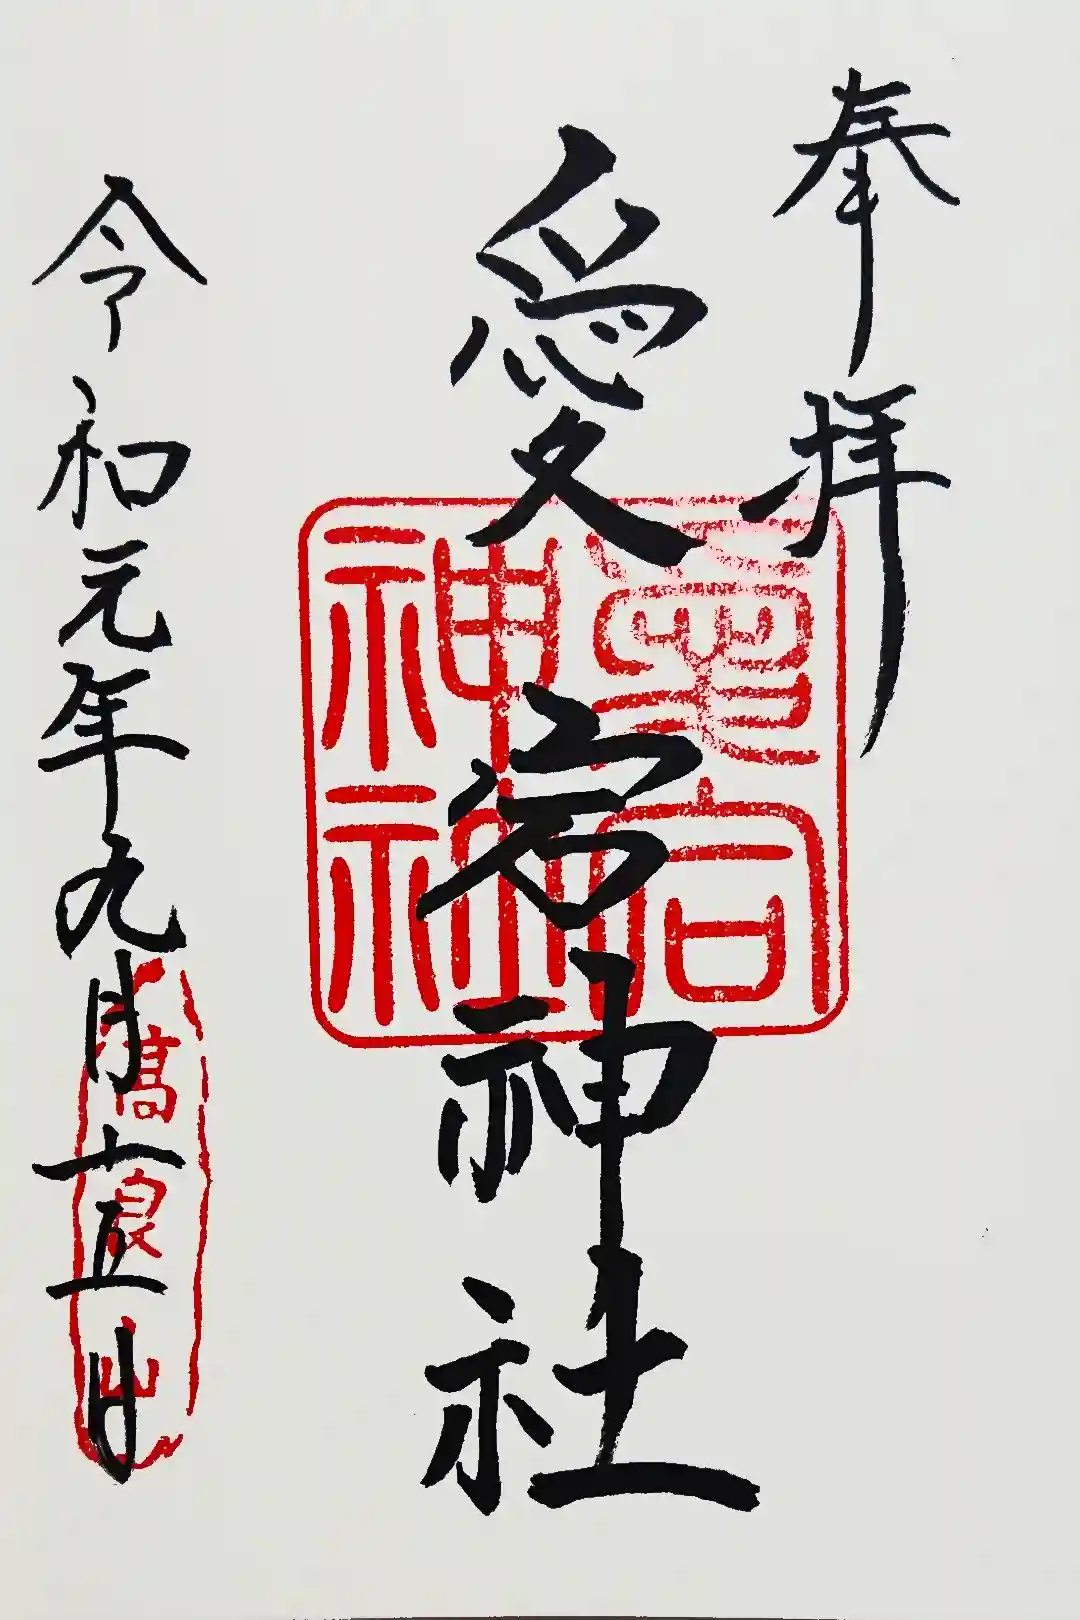 奉拝
愛宕神社
愛宕
神社
令和元年九月十五日
高良山